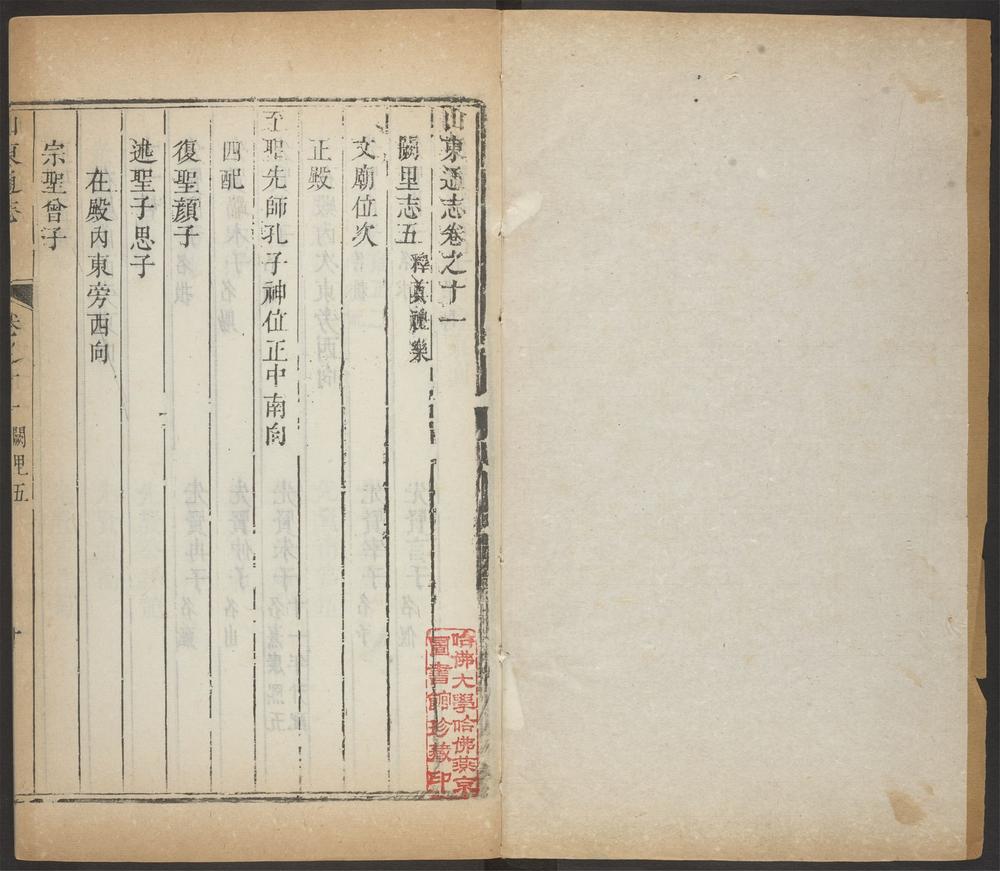 山東通志卷之十一
闕里志五 釋奠禮樂
文廟位次
正殿
至聖先師孔子神位正中南向
四配
復聖顏子
述聖子思子
在殿內東旁西向
宗聖曾子
山東通志
卷之十一 闕里五
哈佛大學哈佛燕京
圖書館珍藏印